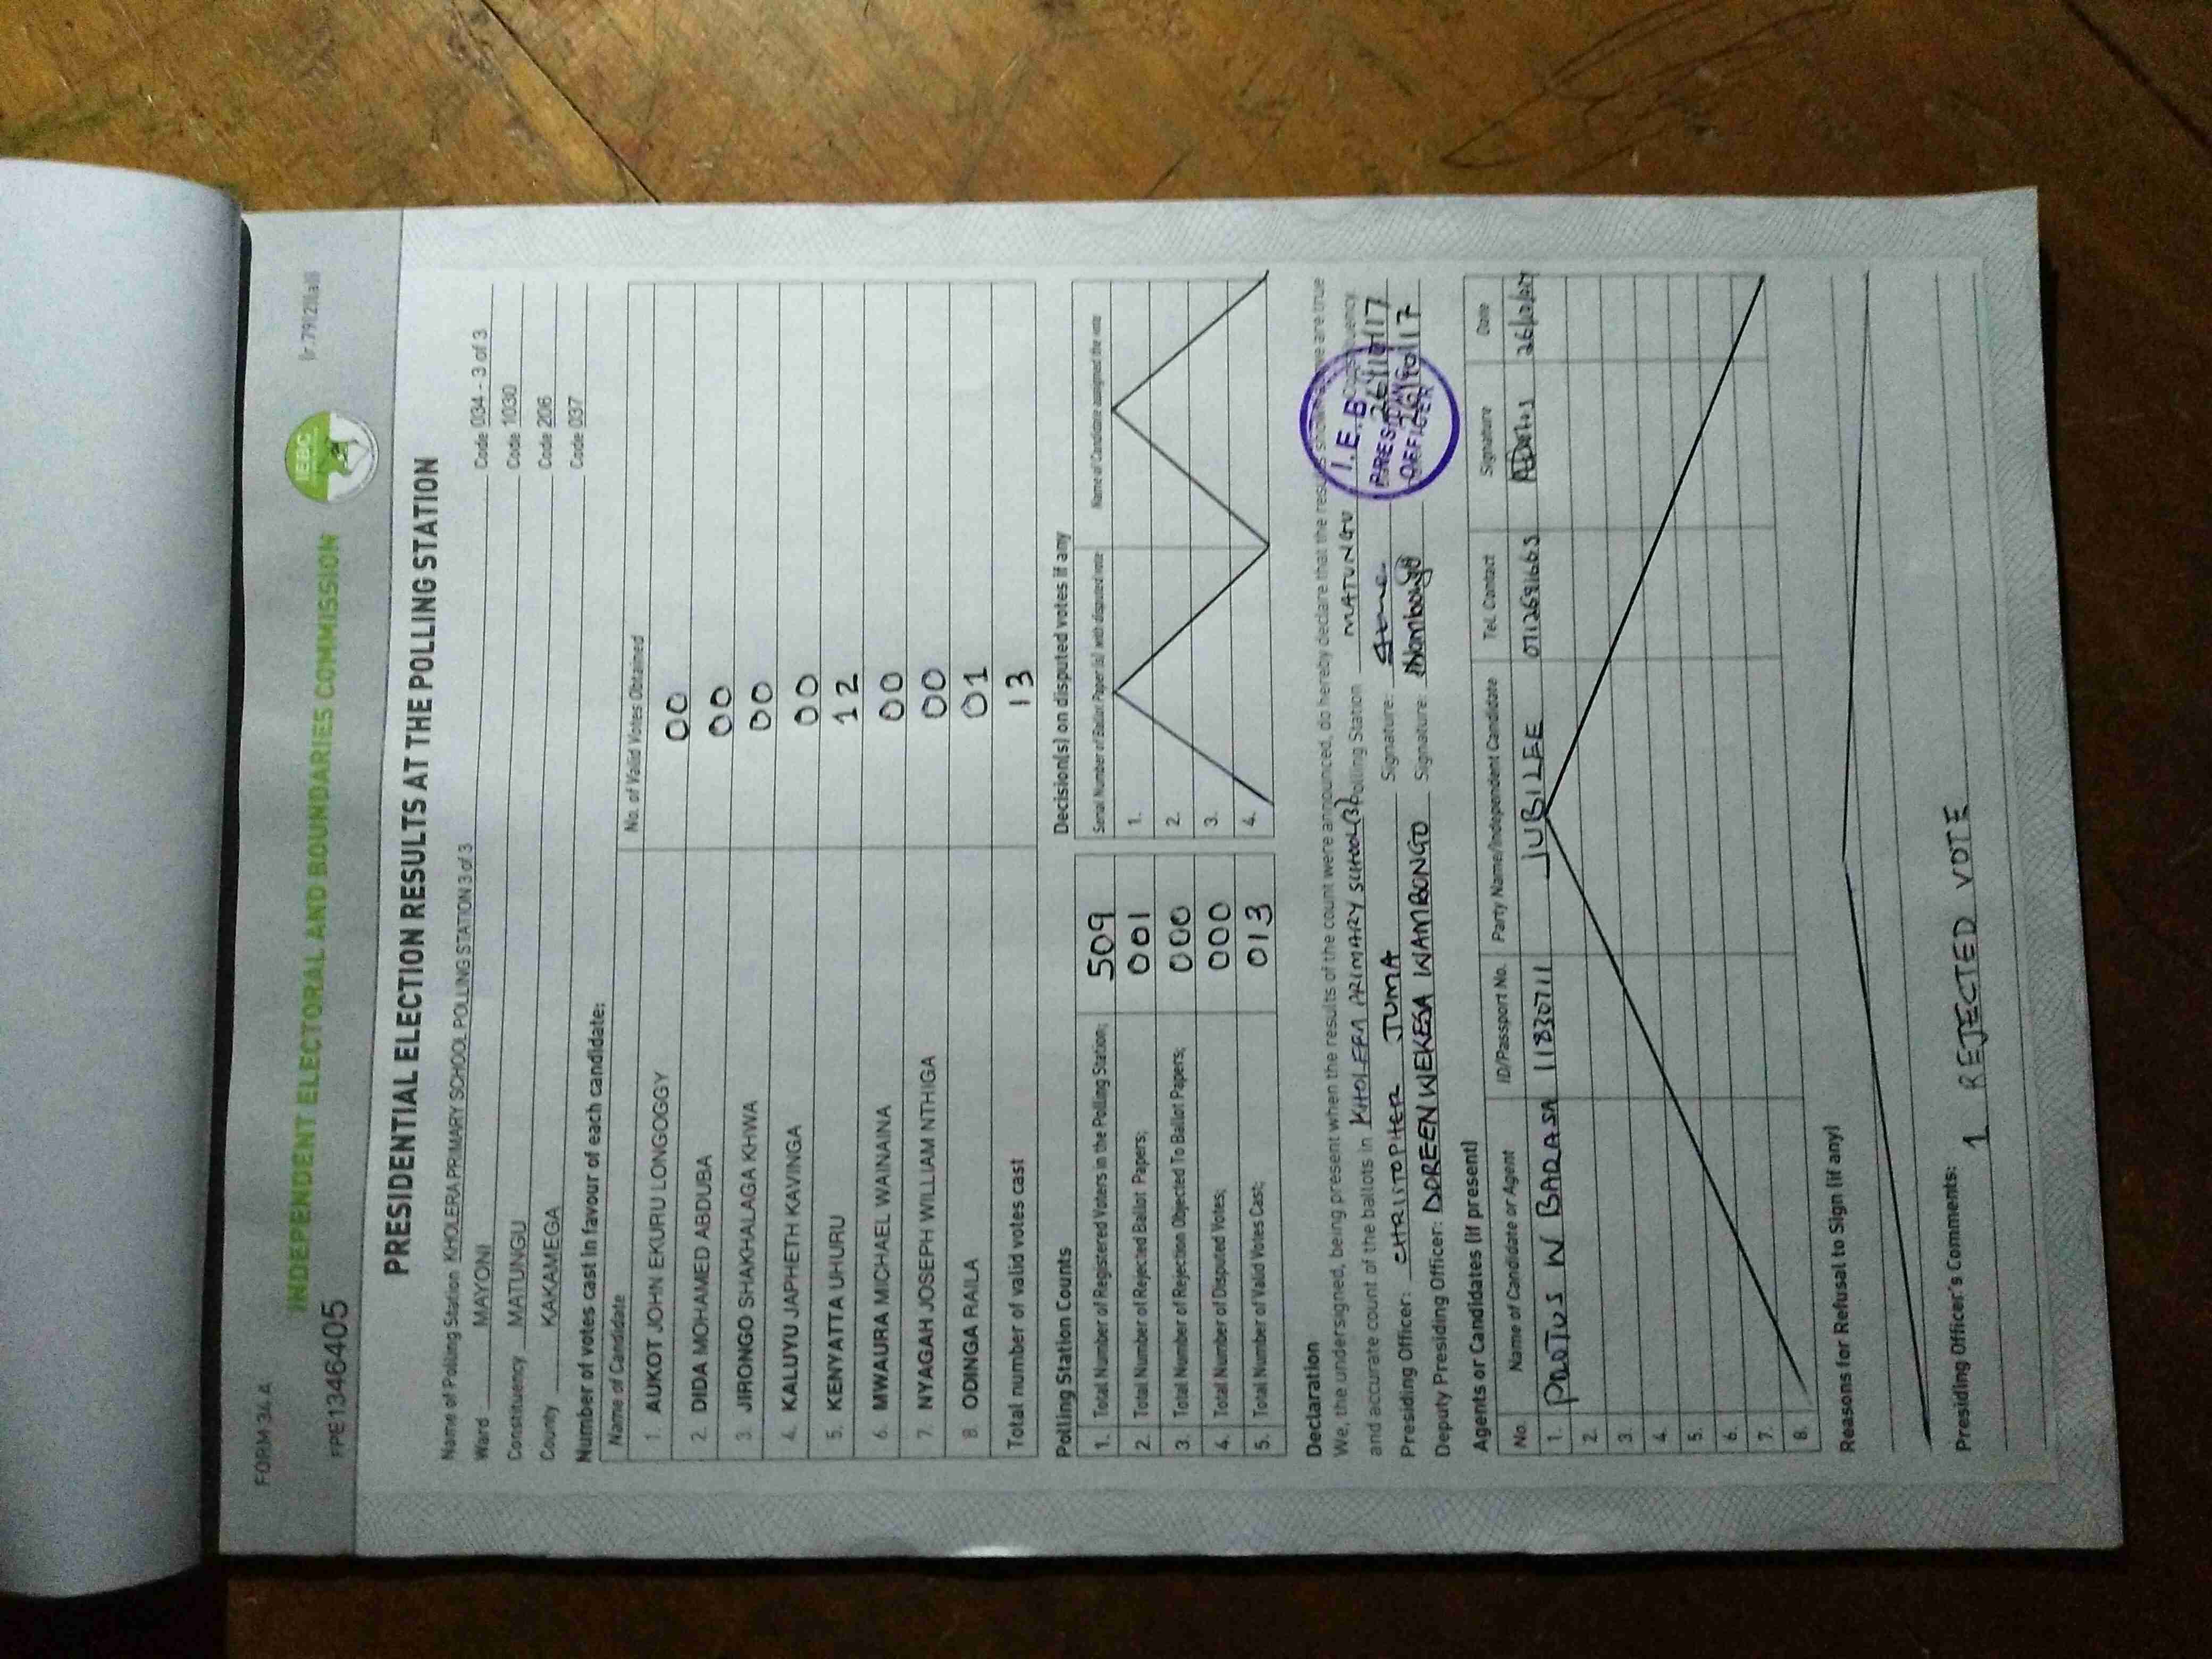 FORM 34A
(r.79(2)(a))
INDEPENDENT ELECTORAL AND BOUNDARIES COMMISSION
IEBC
FPE1346405
PRESIDENTIAL ELECTION RESULTS AT THE POLLING STATION
Name of Polling Station KHOLERA PRIMARY SCHOOL POLLING STATION 3 of 3 Code 034 - 3 of 3
Ward MAYONI Code 1030
Constituency MATUNGU Code 206
County KAKAMEGA Code 037
Number of votes cast in favour of each candidate:
Name of Candidate No. of Valid Votes Obtained
1. AUKOT JOHN EKURU LONGOGGY 00
2. DIDA MOHAMED ABDUBA 00
3. JIRONGO SHAKHALAGA KHWA 00
4. KALUYU JAPHETH KAVINGA 00
5. KENYATTA UHURU 12
6. MWAURA MICHAEL WAINAINA 00
7. NYAGAH JOSEPH WILLIAM NTHIGA 00
8. ODINGA RAILA 01
Total number of valid votes cast 13
Polling Station Counts
1. Total Number of Registered Voters in the Polling Station; 509
2. Total Number of Rejected Ballot Papers; 001
3. Total Number of Rejection Objected To Ballot Papers; 000
4. Total Number of Disputed Votes; 000
5. Total Number of Valid Votes Cast; 013
Decision(s) on disputed votes if any
Serial Number of Ballot Paper (s) with disputed vote Name of Candidate assigned the vote
1.
2.
3.
4.
Declaration
We, the undersigned, being present when the results of the count were announced, do hereby declare that the results shown above are true
and accurate count of the ballots in KHOLERA PRIMARY SCHOOL (3) Polling Station MATUNGU Constituency.
Presiding Officer: CHRISTOPHER JUMA Signature: 26/10/17
Deputy Presiding Officer: DOREEN WEKESA WAMBONGO Signature: 26/10/17
I.E.B.C
PRESIDING
OFFICER
Agents or Candidates (if present)
No. Name of Candidate or Agent ID/Passport No. Party Name/Independent Candidate Tel. Contact Signature Date
1. PROTUS W BARASA 11830711 JUBILEE 0712691663 26/10/2017
2.
3.
4.
5.
6.
7.
8.
Reasons for Refusal to Sign (if any)
Presiding Officer's Comments:
1 REJECTED VOTE